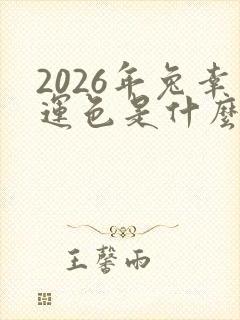 2026年兔幸
運色是什麼
王馨雨